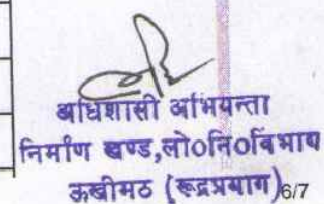 अधिशासी अभियन्ता
निर्माण खण्ड,लो०नि०विभाग
ऊखीमठ (रूद्रप्रयाग)
6/7